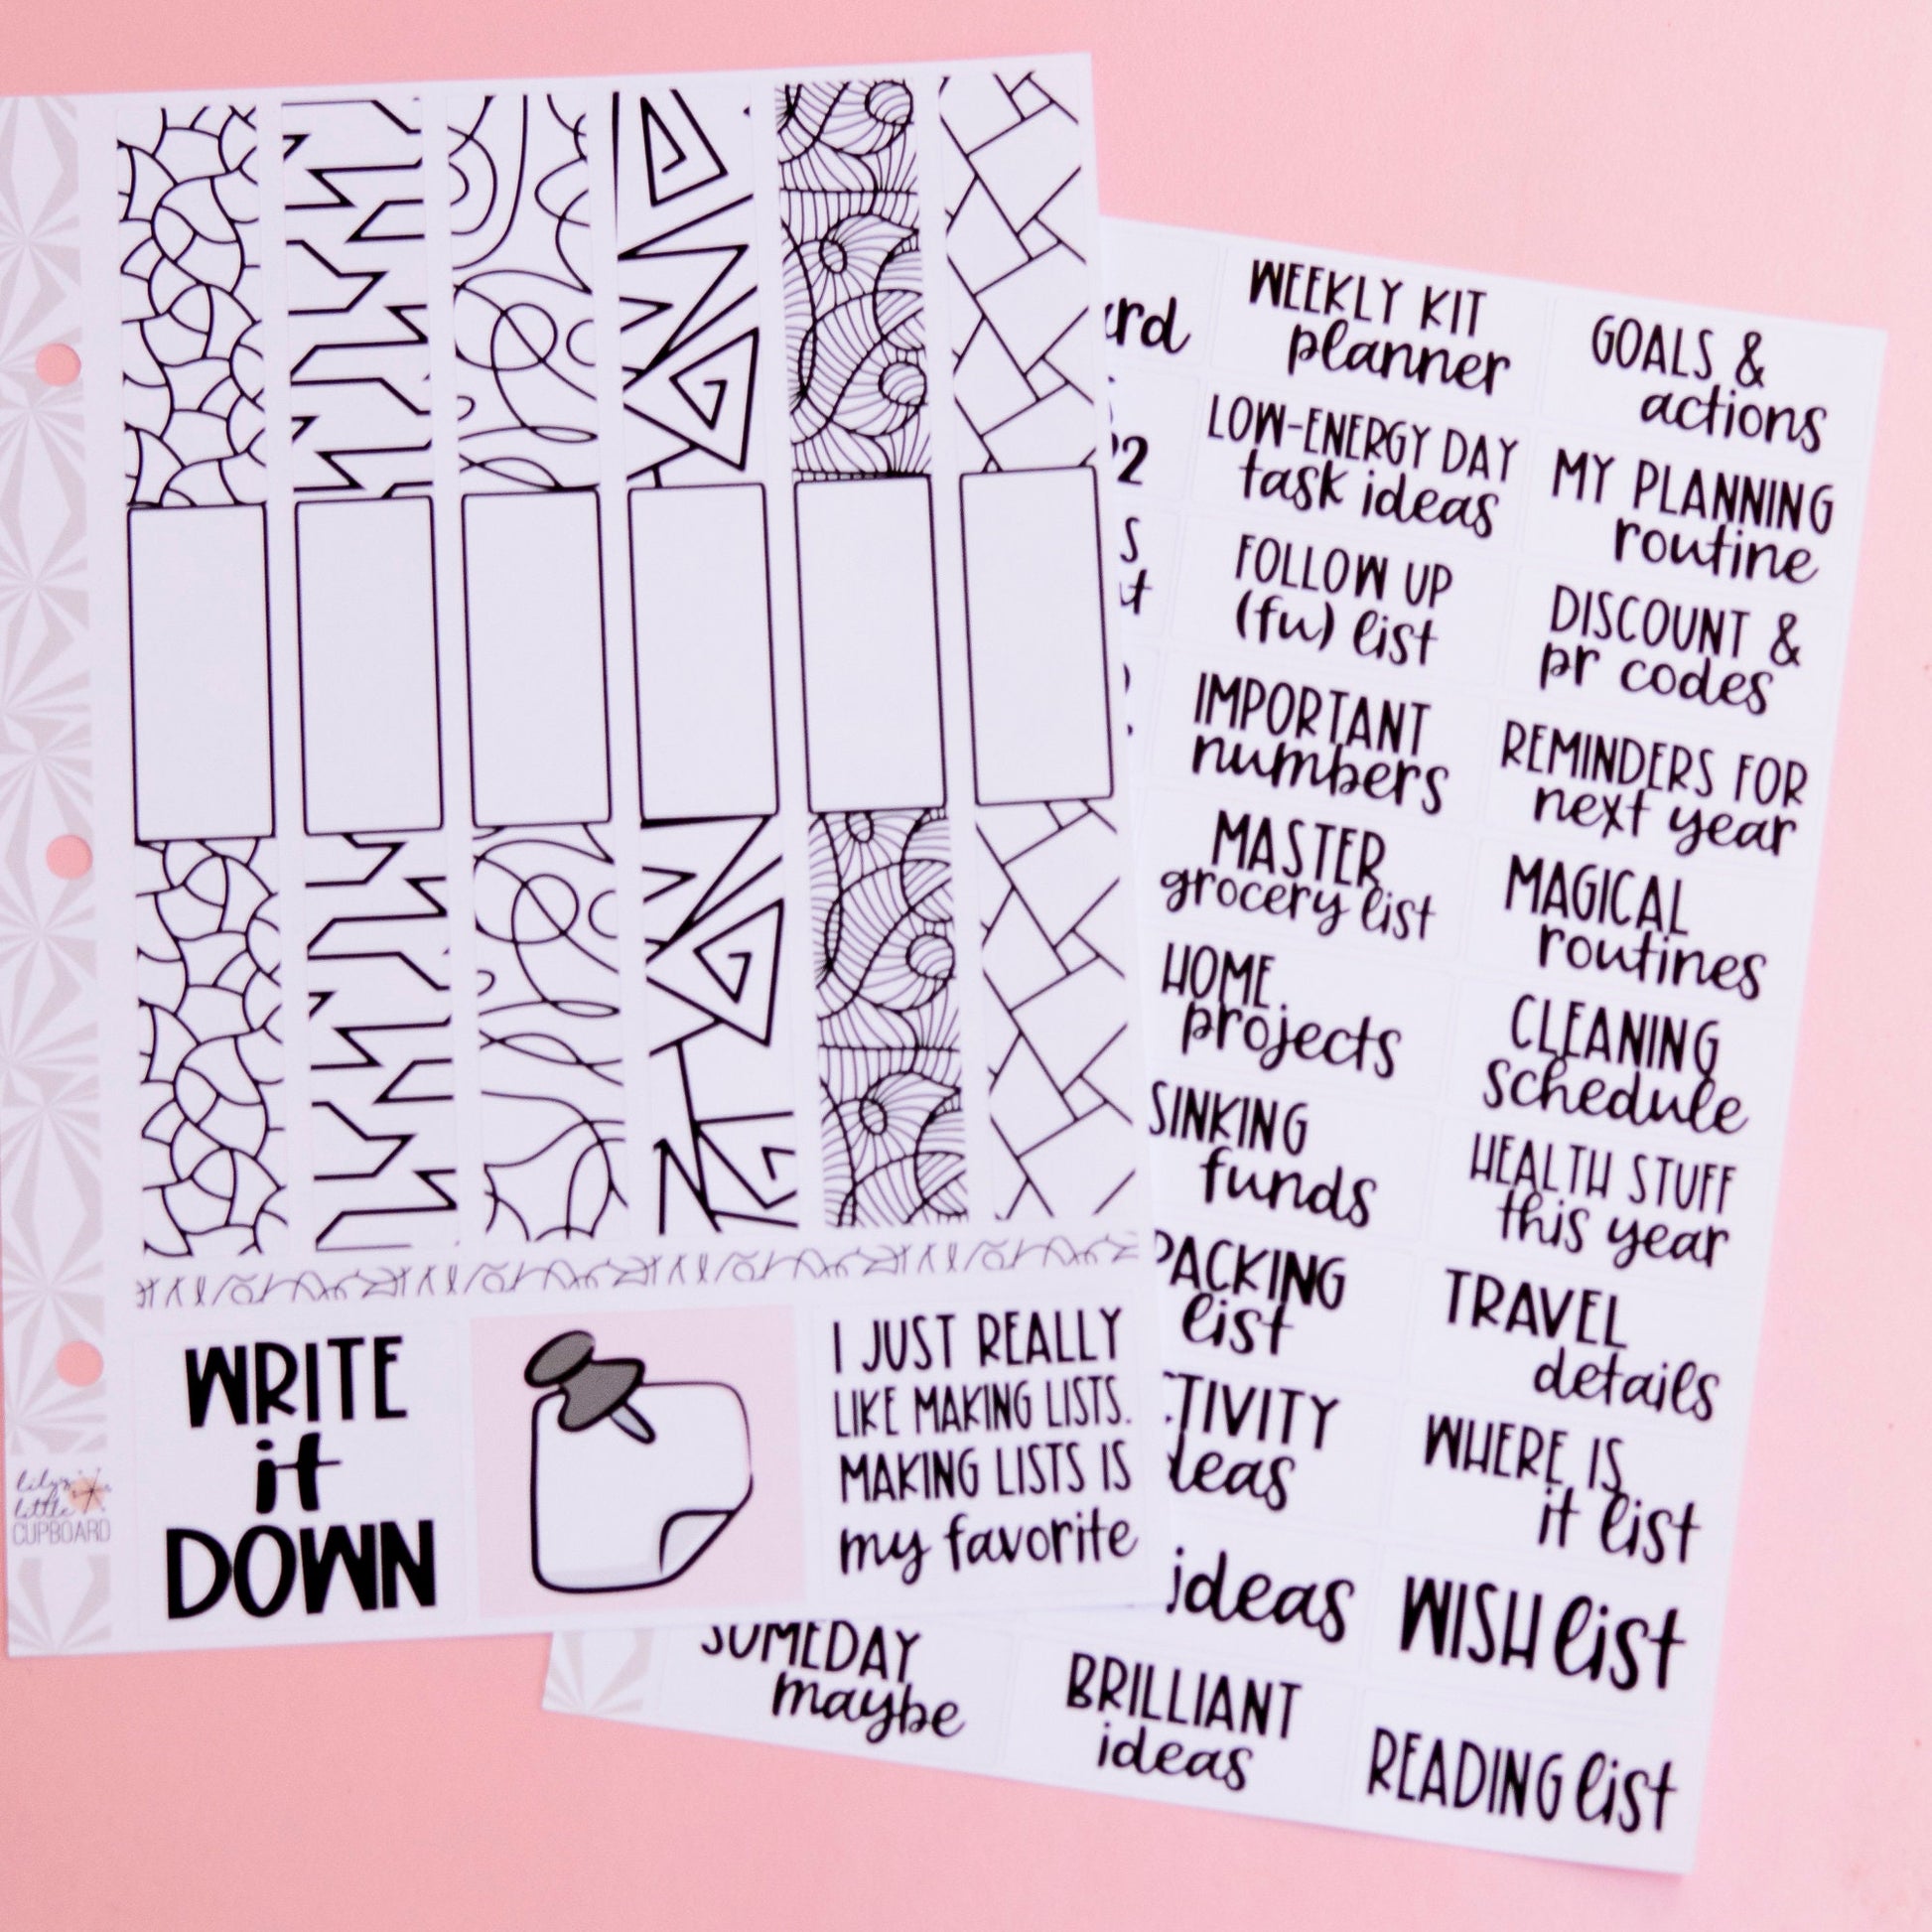 WRITE
it
DOWN
I JUST REALLY
LIKE MAKING LISTS.
MAKING LISTS IS
my favorite
lily's
little
CUPBOARD
WEEKLY KIT
planner
GOALS &
actions
LOW-ENERGY DAY
task ideas
MY PLANNING
routine
FOLLOW UP
(fu) list
DISCOUNT &
pr codes
IMPORTANT
numbers
REMINDERS FOR
next year
MASTER
grocery list
MAGICAL
routines
HOME
projects
CLEANING
schedule
SINKING
funds
HEALTH STUFF
this year
PACKING
list
TRAVEL
details
WHERE IS
it list
ideas
WISH list
SOMEDAY
maybe
BRILLIANT
ideas
READING list